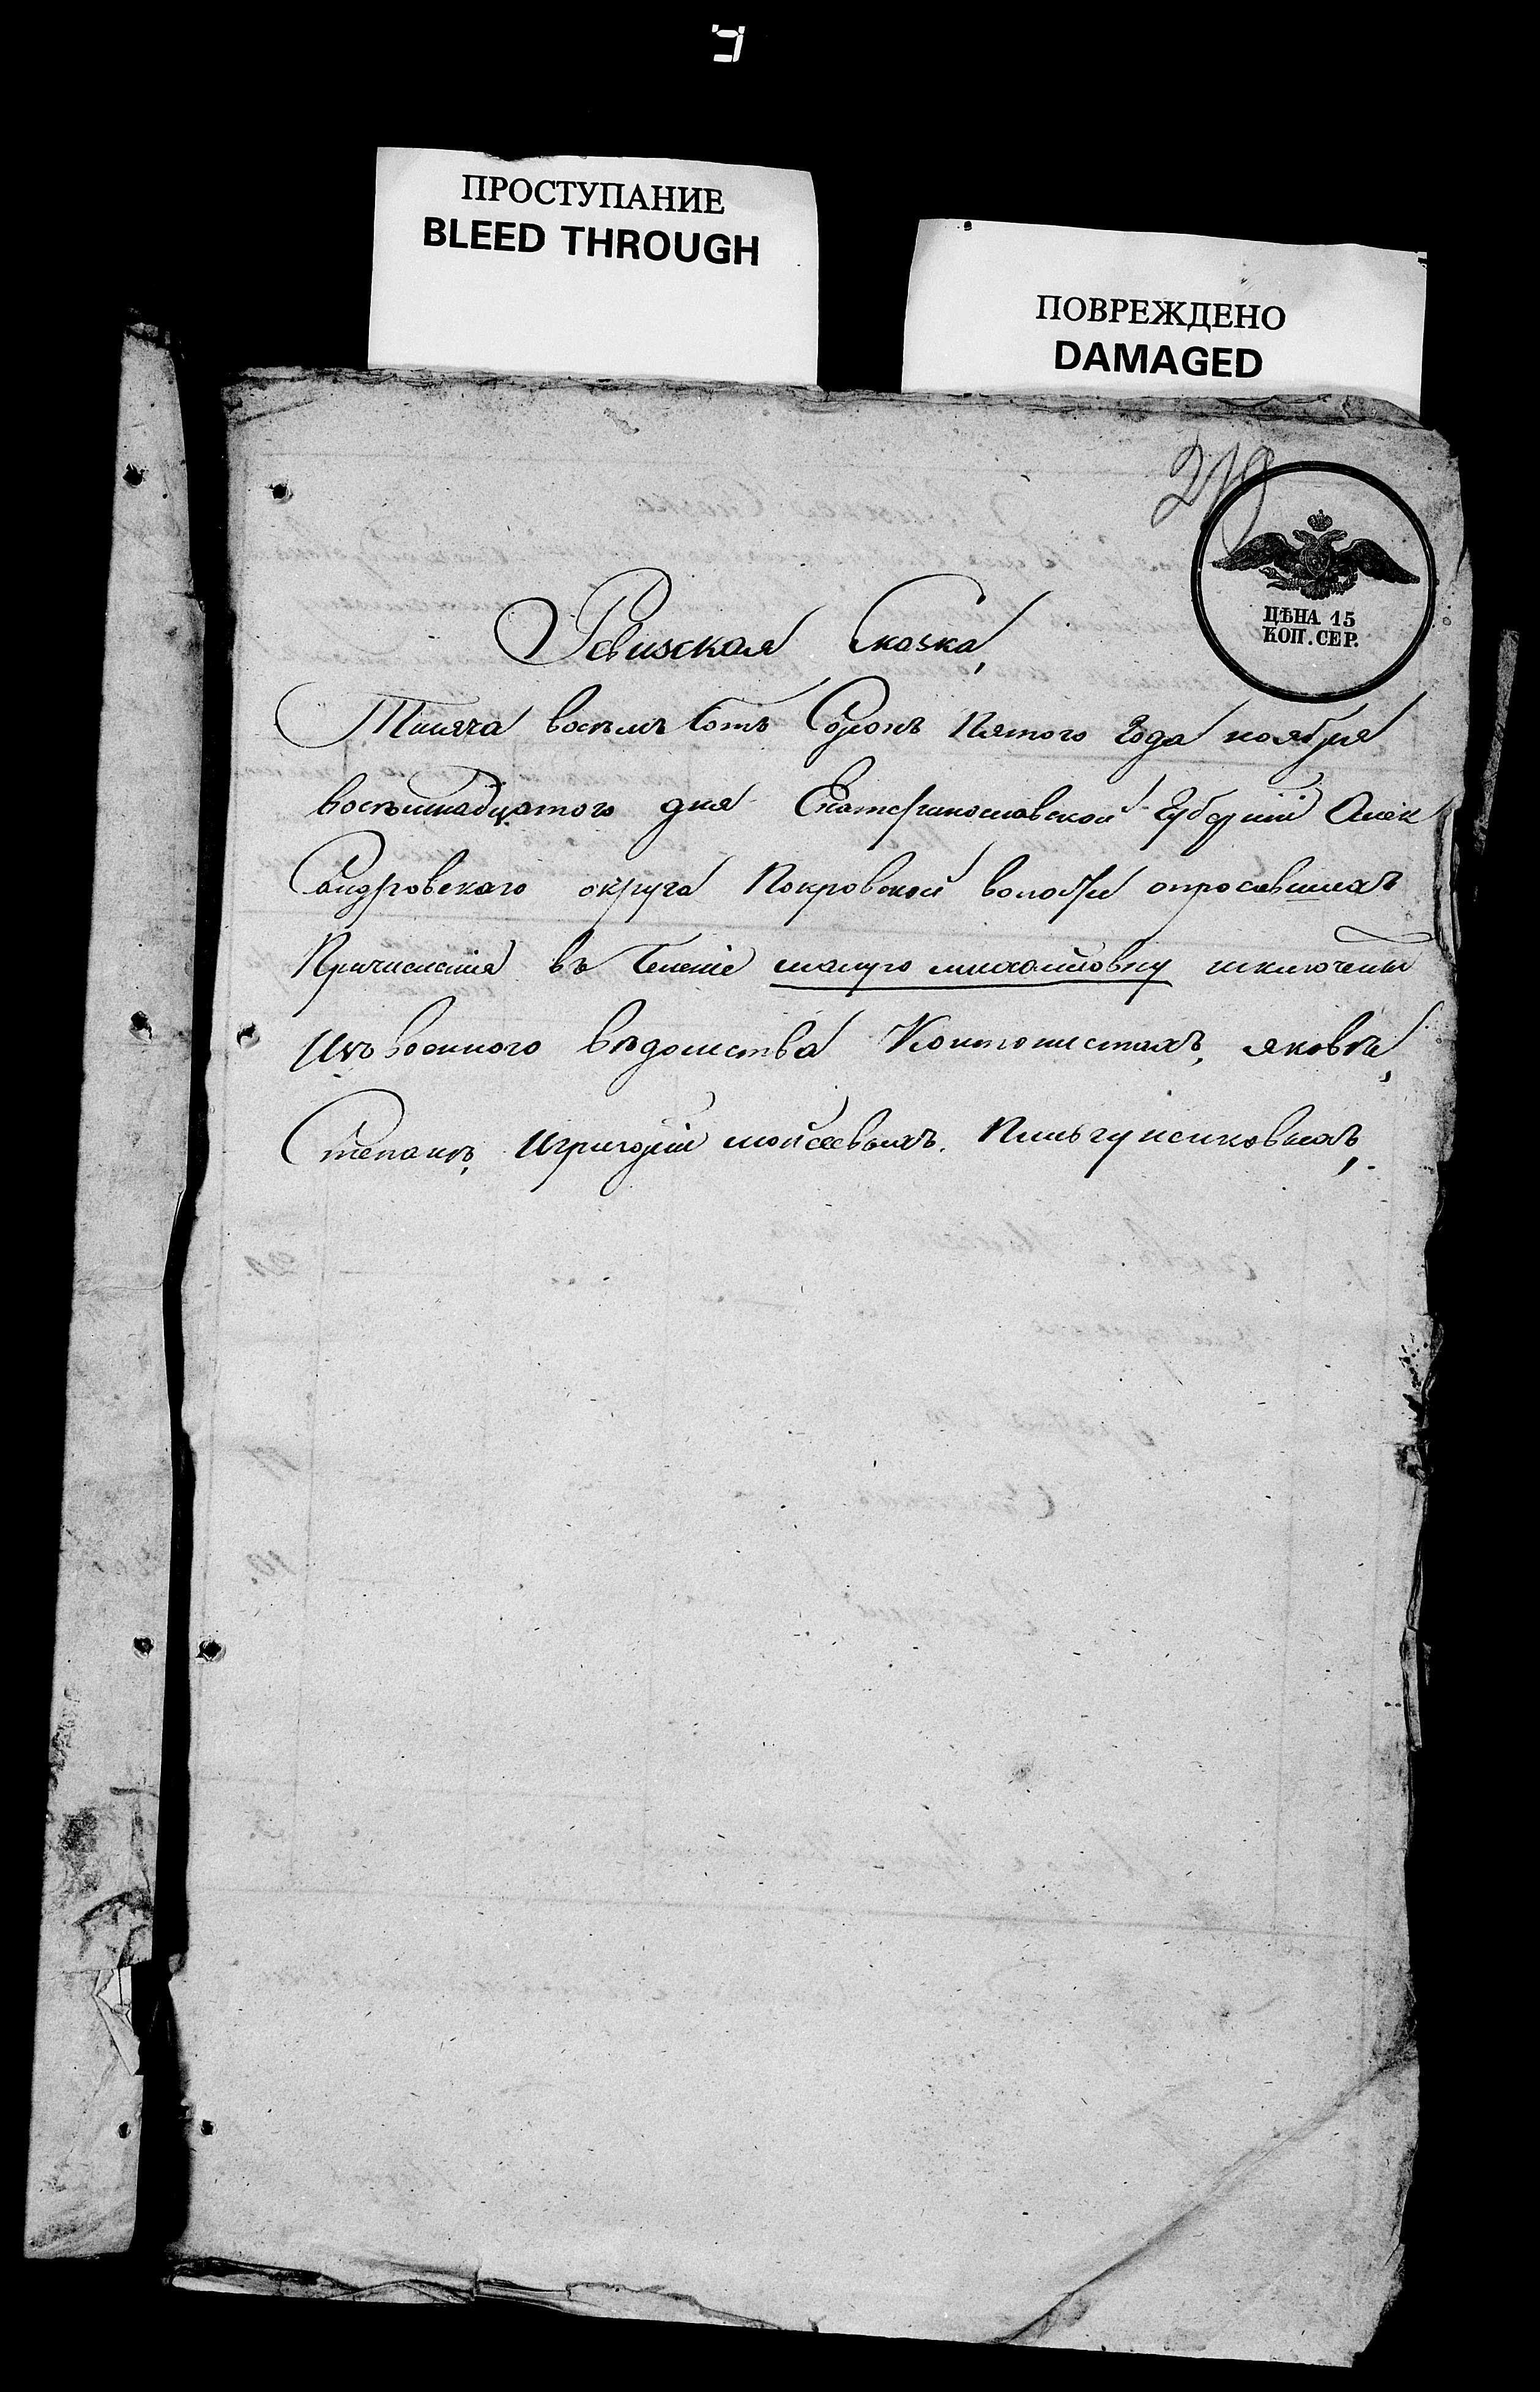 ПРОСТУПАНИЕ
BLEED THROUGH
ПОВРЕЖДЕНО
DAMAGED
219
ЦѢНА 15
КОП. СЕР.
Ревизская Сказка,
Тысяча восемъ Сотъ Сорокъ Пятого Года ноября
восемнадцатого дня Екатеринославской Губернiи Алек
Сандровскаго округа Покровской волости опросившихъ
Причисления въ Селенiе малую михайловку изключены
Изъ военного вѣдомства Контонистахъ, яковѣ,
Степанѣ, Игригорiи мойсеевыхъ.